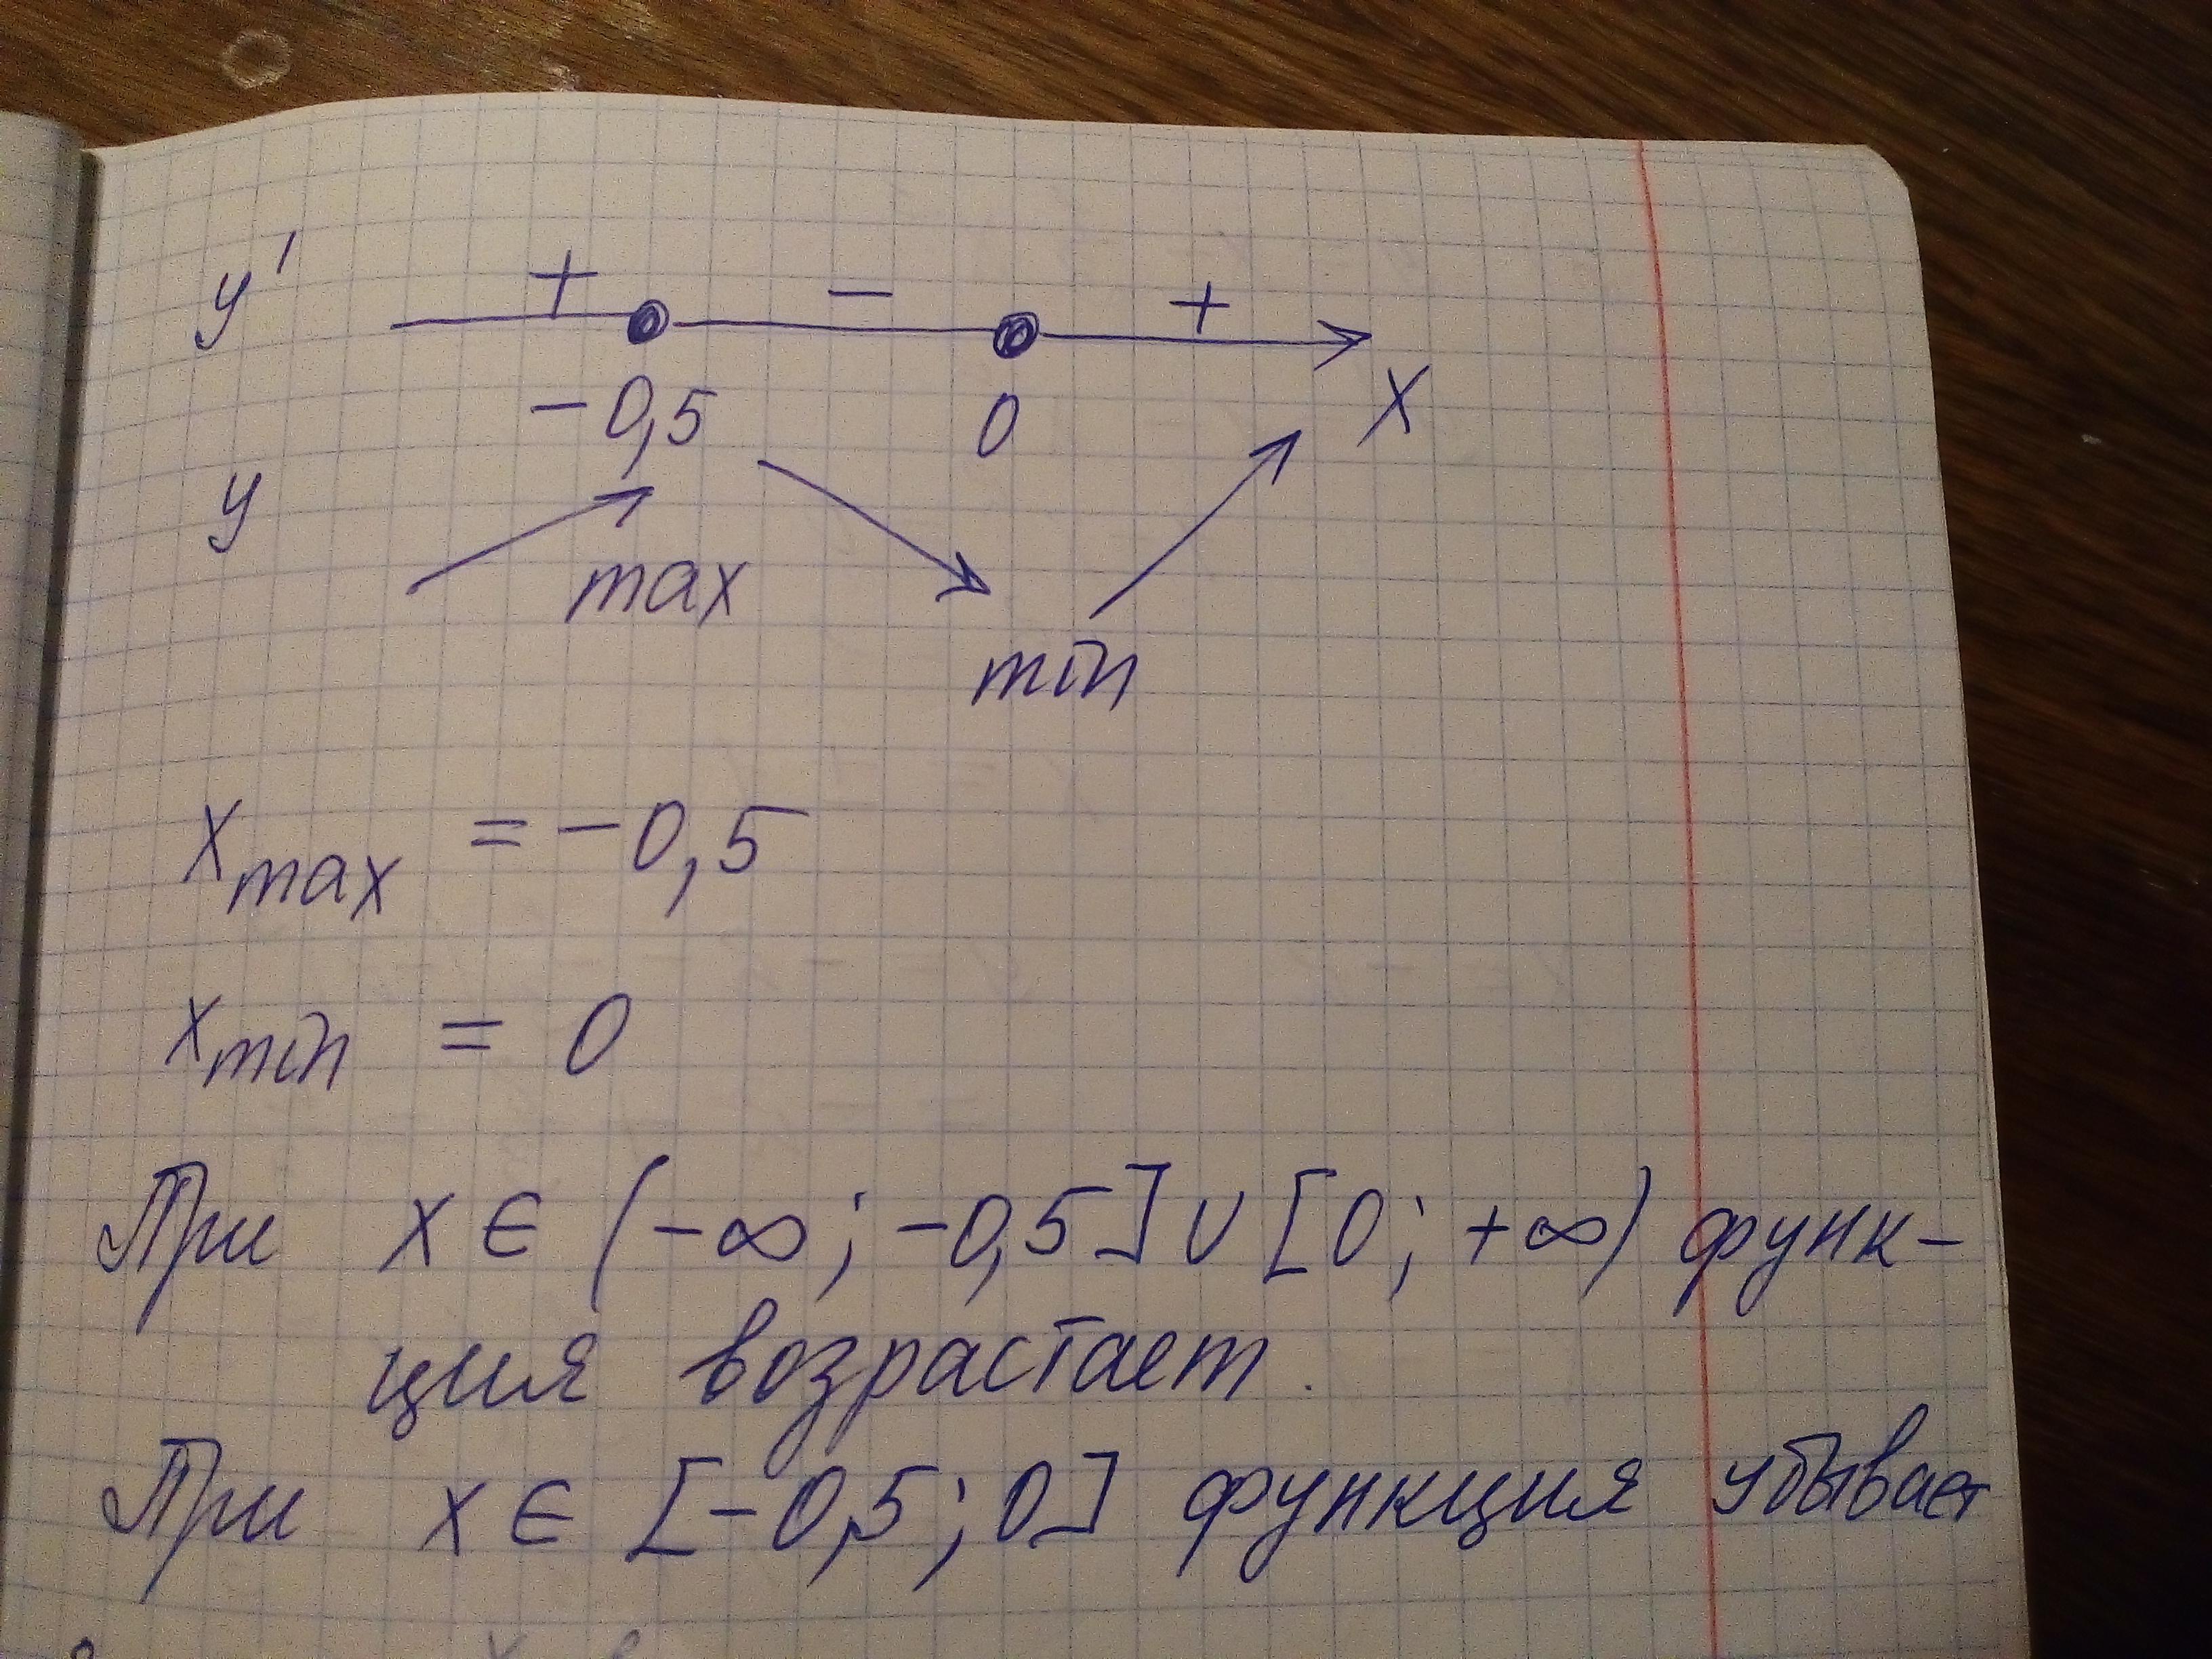 y' + - + 
-0,5 0 x
y
max
min
x max = -0,5
x min = 0
При x ∈ (-∞; -0,5] ∪ [0; +∞) функ-
ция возрастает.
При x ∈ [-0,5; 0] функция убывает